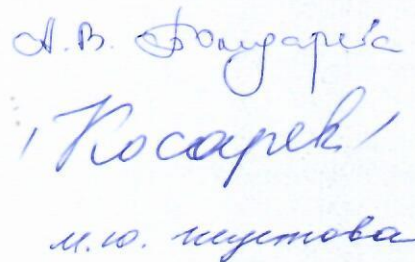 А.В. Бондарев
/Косарев/
М.Ю. Шустова